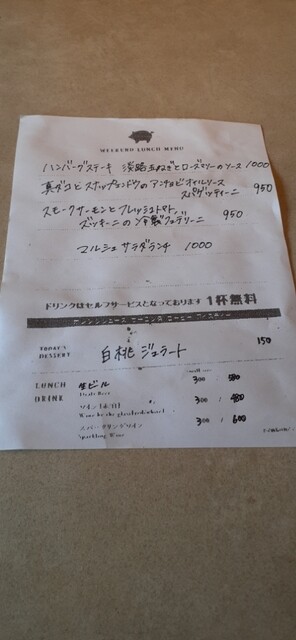 WEEKEND LUNCH MENU
ハンバーグステーキ 淡路玉ねぎとローズマリーのソース 1000
真ダコとスナップエンドウのアンチョビオイルソース
スパゲッティーニ 950
スモークサーモンとフレッシュトマト、
ズッキーニの冷製フェデリーニ 950
マルシェサラダランチ 1000
ドリンクはセルフサービスとなっております 1杯無料
TODAY'S
DESSERT
白桃ジェラート 150
LUNCH
DRINK
生ビール 300 / 580
Draft Beer
ワイン [赤/白] 300 / 480
Wine by the glass
スパークリングワイン 300 / 600
Sparkling Wine